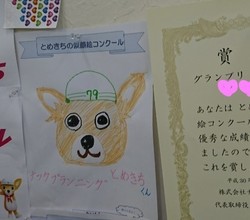 とめきちの似顔絵コンクール
79
とめきち
くん
賞
グランプリ
あなたは と
絵コンクール
優秀な成績
ましたので
これを賞し
平成30
株式会社
代表取締役